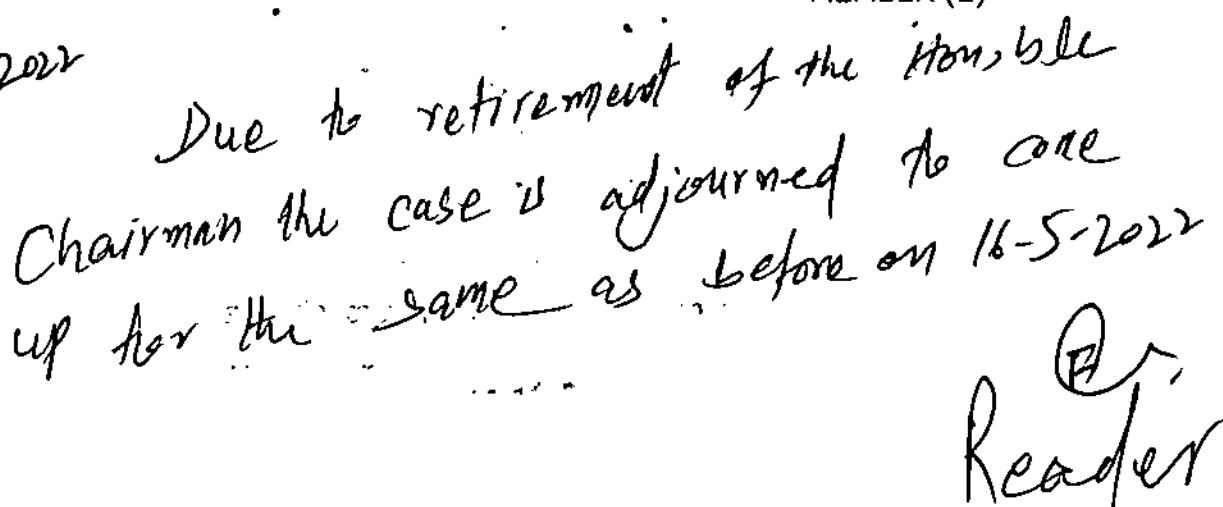 2022
Due to retirement of the Hon,ble
Chairman the case is adjourned to come
up for the same as before on 16-5-2022
Reader